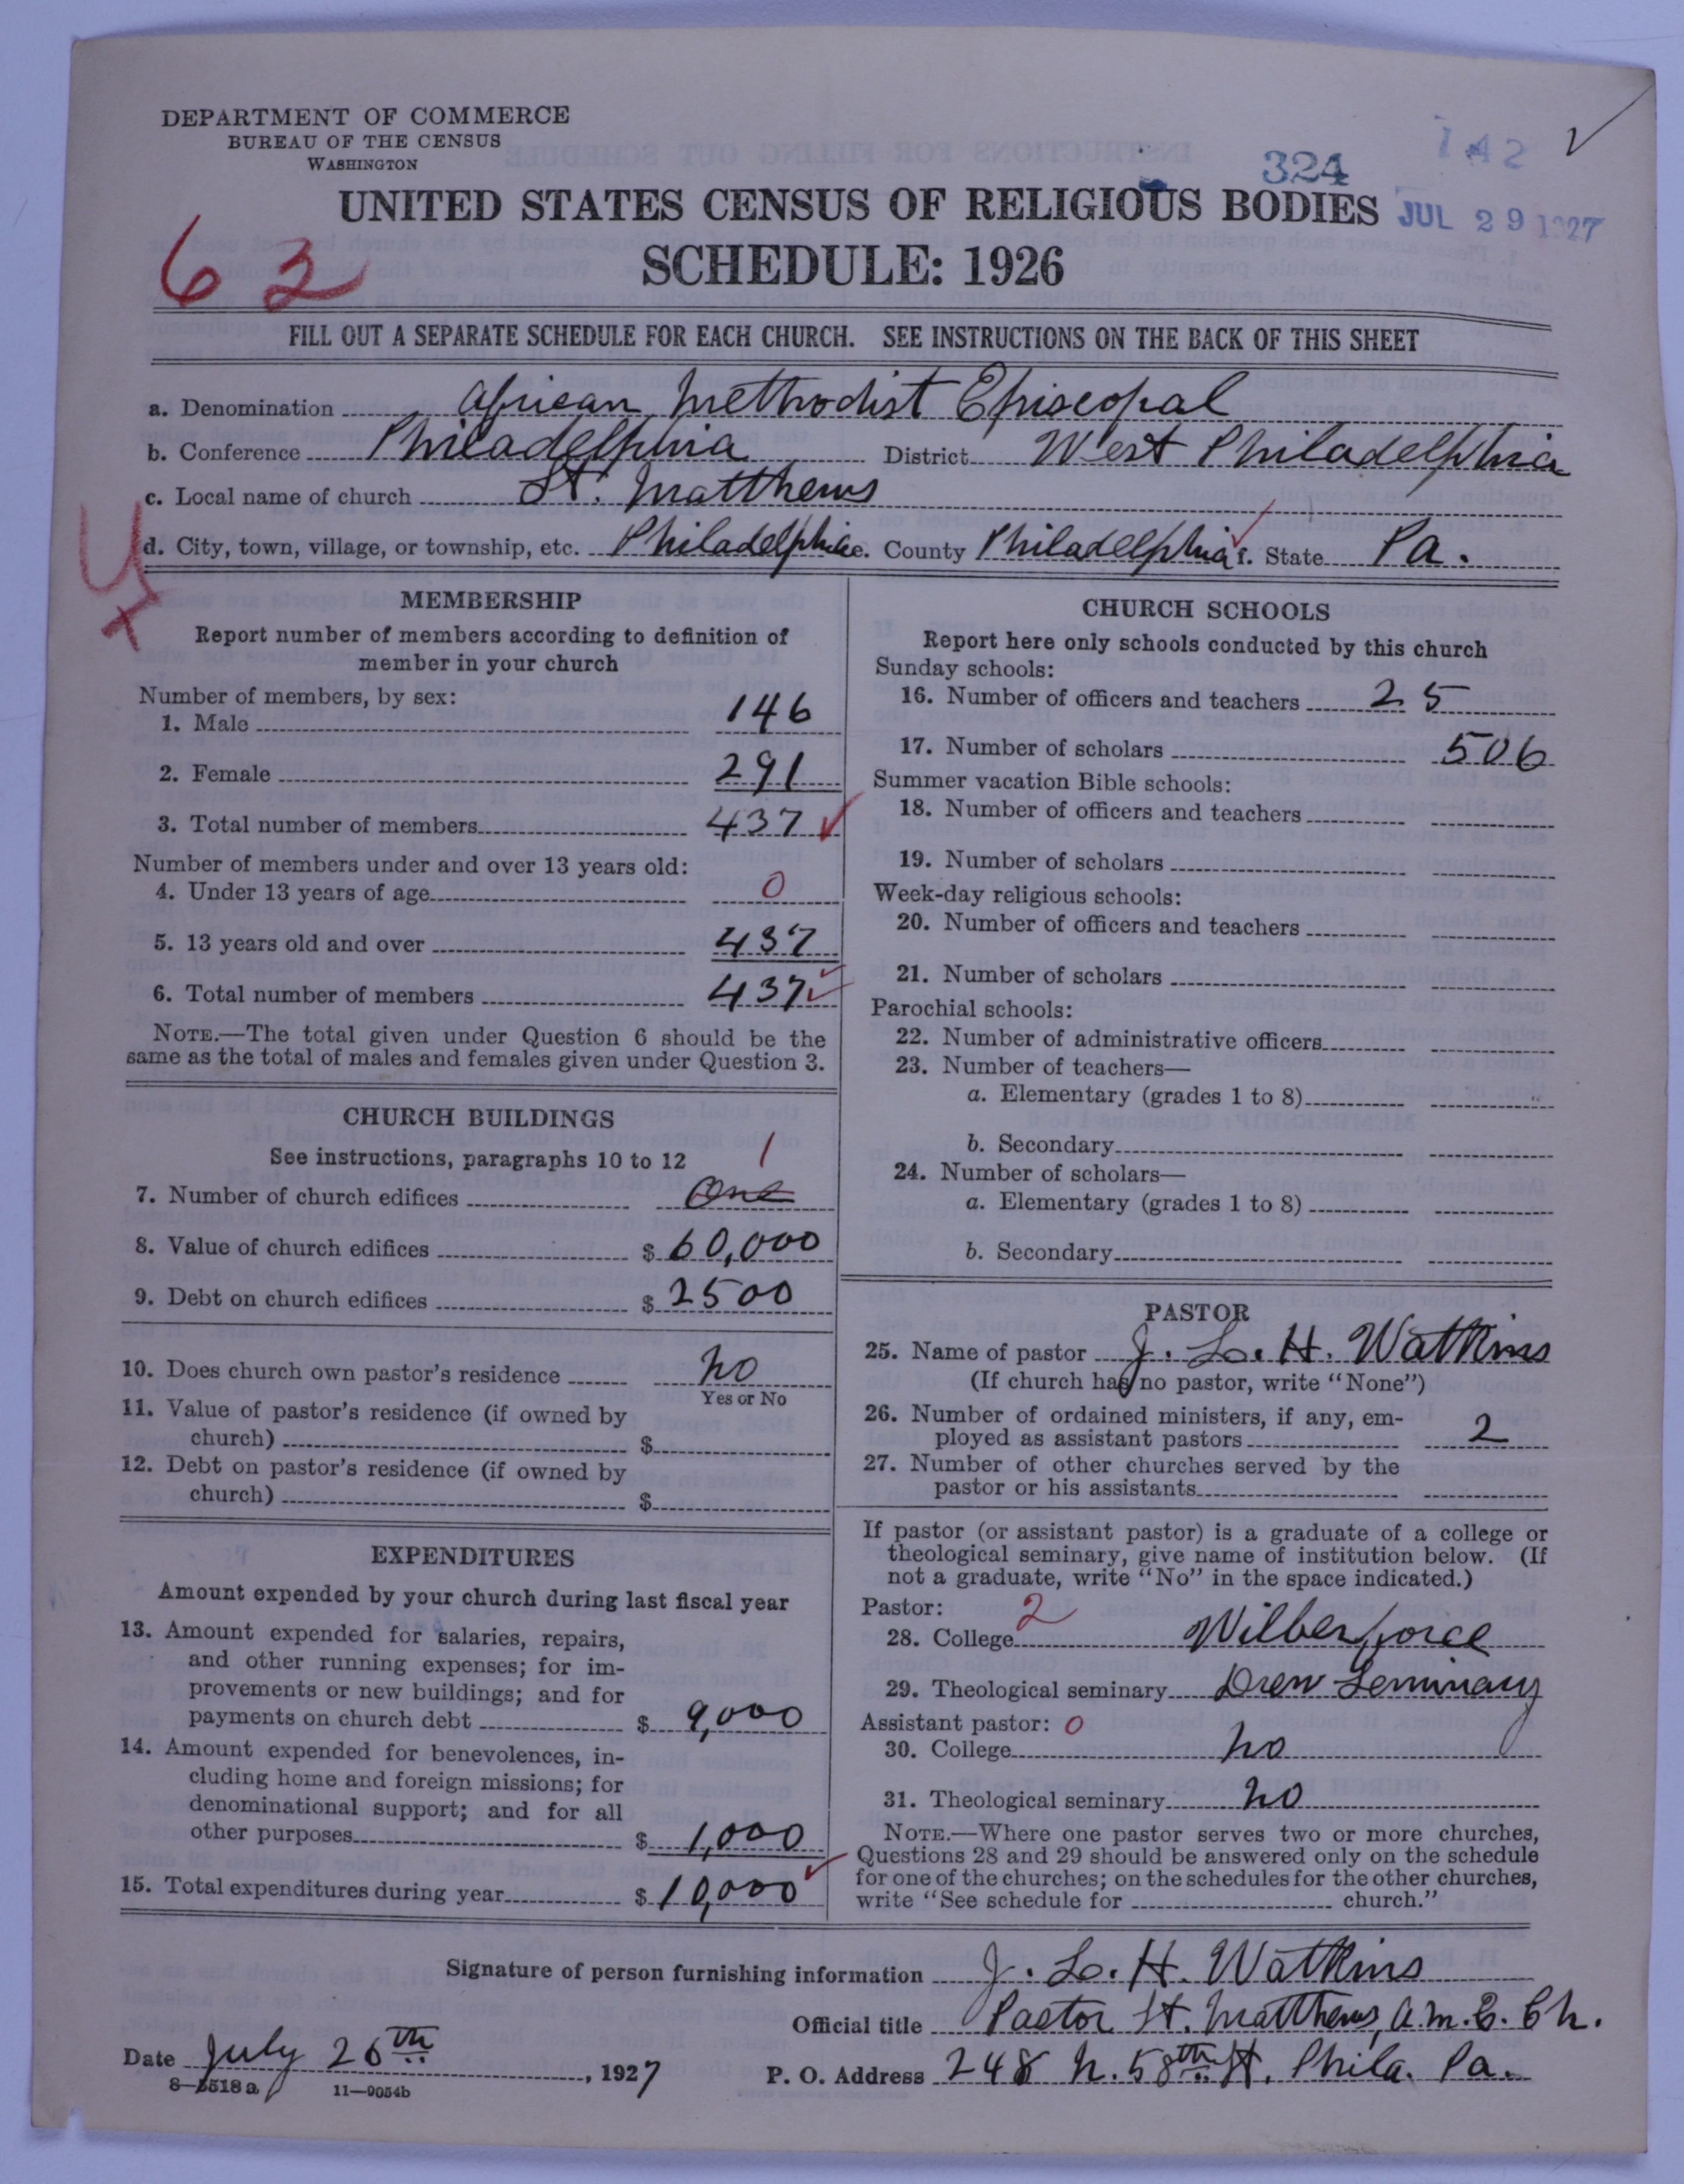 DEPARTMENT OF COMMERCE
BUREAU OF THE CENSUS
WASHINGTON
142
324
UNITED STATES CENSUS OF RELIGIOUS BODIES
JUL 29 1927
SCHEDULE: 1926
62
FILL OUT A SEPARATE SCHEDULE FOR EACH CHURCH. SEE INSTRUCTIONS ON THE BACK OF THIS SHEET
a. Denomination African Methodist Episcopal
b. Conference Philadelphia District West Philadelphia
c. Local name of church St. Matthews
d. City, town, village, or township, etc. Philadelphia e. County Philadelphia f. State Pa.
MEMBERSHIP
Report number of members according to definition of
member in your church
Number of members, by sex:
1. Male 146
2. Female 291
3. Total number of members 437
Number of members under and over 13 years old:
4. Under 13 years of age 0
5. 13 years old and over 437
6. Total number of members 437
NOTE.—The total given under Question 6 should be the
same as the total of males and females given under Question 3.
CHURCH BUILDINGS
See instructions, paragraphs 10 to 12
1
7. Number of church edifices One
8. Value of church edifices $ 60,000
9. Debt on church edifices $ 2500
10. Does church own pastor's residence No
Yes or No
11. Value of pastor's residence (if owned by
church) $
12. Debt on pastor's residence (if owned by
church) $
EXPENDITURES
Amount expended by your church during last fiscal year
13. Amount expended for salaries, repairs,
and other running expenses; for im-
provements or new buildings; and for
payments on church debt $ 9,000
14. Amount expended for benevolences, in-
cluding home and foreign missions; for
denominational support; and for all
other purposes $ 1,000
15. Total expenditures during year $ 10,000
CHURCH SCHOOLS
Report here only schools conducted by this church
Sunday schools:
16. Number of officers and teachers 25
17. Number of scholars 506
Summer vacation Bible schools:
18. Number of officers and teachers
19. Number of scholars
Week-day religious schools:
20. Number of officers and teachers
21. Number of scholars
Parochial schools:
22. Number of administrative officers
23. Number of teachers—
a. Elementary (grades 1 to 8)
b. Secondary
24. Number of scholars—
a. Elementary (grades 1 to 8)
b. Secondary
PASTOR
25. Name of pastor J. L. H. Watkins
(If church has no pastor, write "None")
26. Number of ordained ministers, if any, em-
ployed as assistant pastors 2
27. Number of other churches served by the
pastor or his assistants
If pastor (or assistant pastor) is a graduate of a college or
theological seminary, give name of institution below. (If
not a graduate, write "No" in the space indicated.)
Pastor: 2
28. College Wilberforce
29. Theological seminary Drew Seminary
Assistant pastor: 0
30. College No
31. Theological seminary No
NOTE.—Where one pastor serves two or more churches,
Questions 28 and 29 should be answered only on the schedule
for one of the churches; on the schedules for the other churches,
write "See schedule for church."
Signature of person furnishing information J. L. H. Watkins
Official title Pastor St. Matthews, A.M.E. Ch.
Date July 26th, 1927
P. O. Address 248 N. 58th St. Phila. Pa.
8—5518a 11—9054b